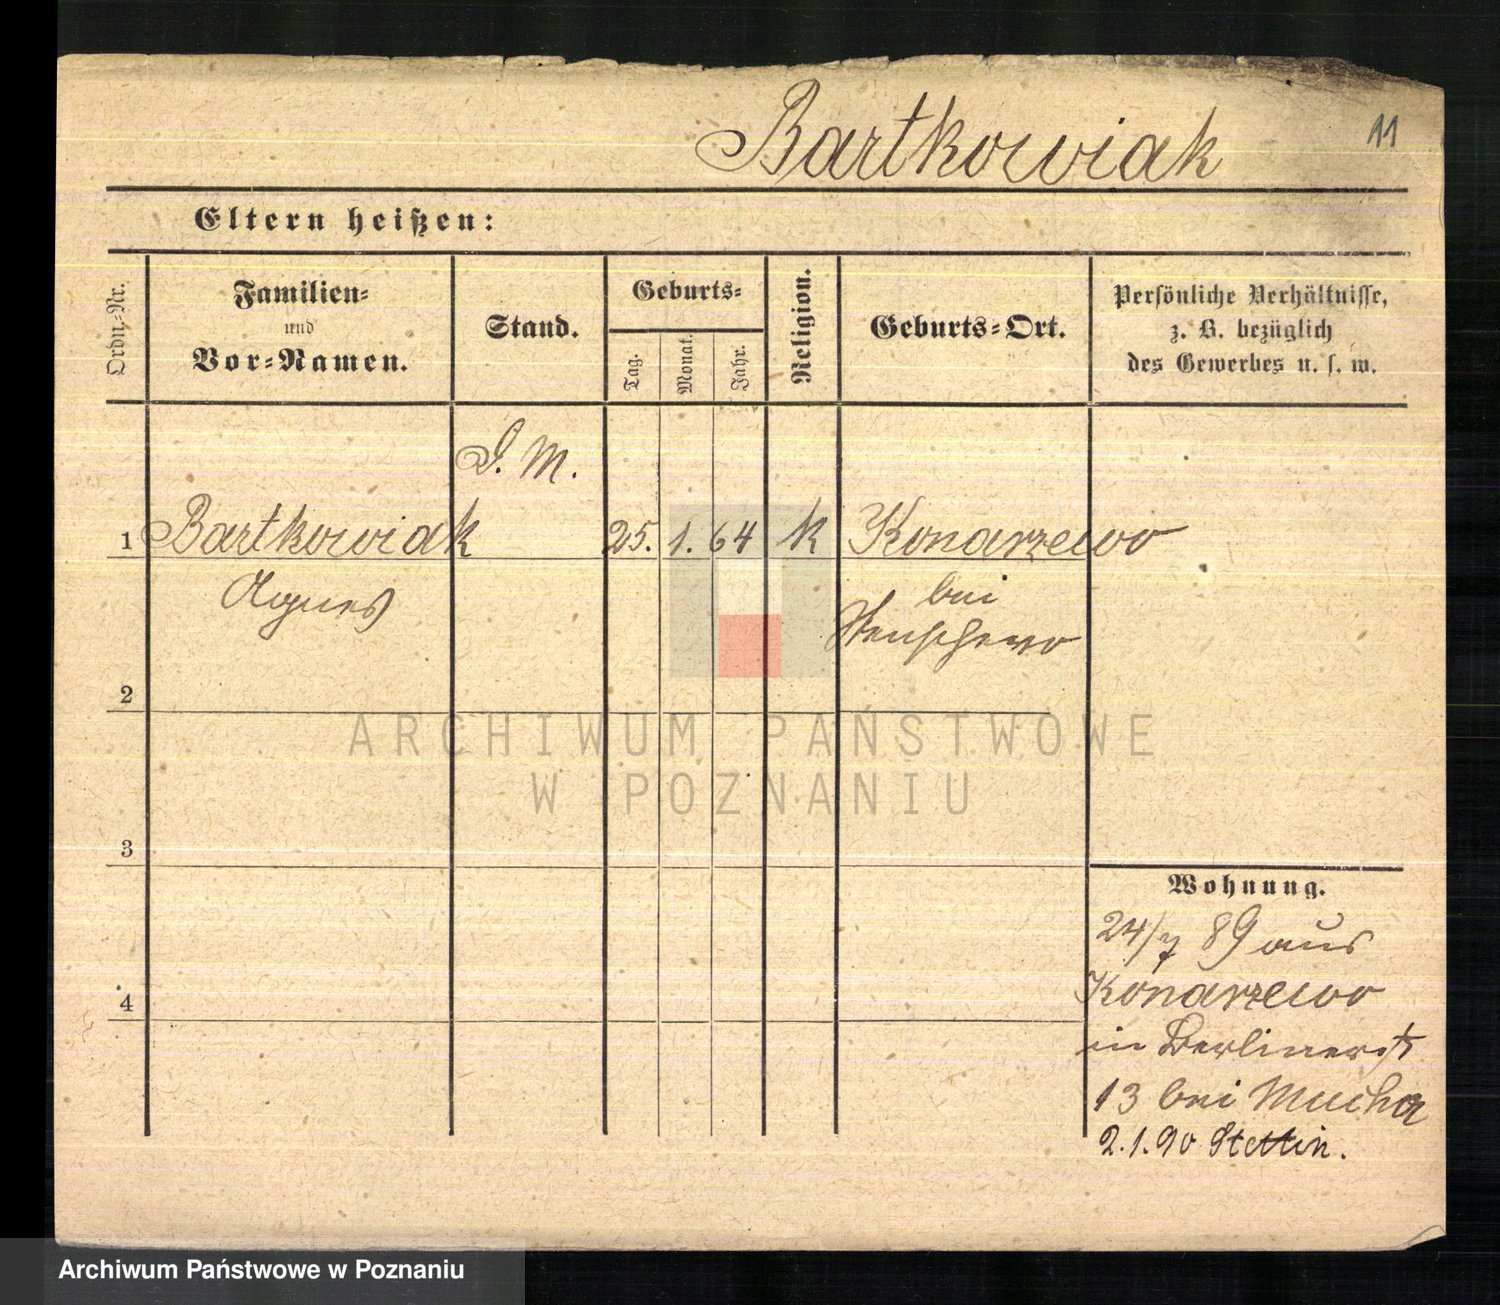 Bartkowiak
11
Eltern heißen:
Ordn.-Nr.
Familien-
und
Vor-Namen.
Stand.
Geburts-
Tag.
Monat.
Jahr.
Religion.
Geburts-Ort.
Persönliche Verhältnisse,
z. B. bezüglich
des Gewerbes u. s. w.
D. M.
1 Bartkowiak 25. 1. 64 k Konarzewo
Agnes
bei
Stenschewo
2
3
4
Wohnung.
24/7 89 aus
Konarzewo
in Berlinerst
13 bei Mucha
2.1.90 Stettin.
ARCHIWUM PAŃSTWOWE
W POZNANIU
Archiwum Państwowe w Poznaniu